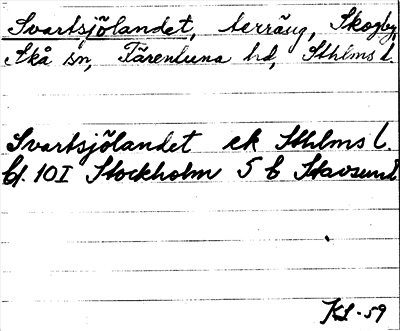 Svartsjölandet, terräng, Skogby,
Skå sn, Färentuna hd, Sthlms l.
Svartsjölandet ek Sthlms l.
bl. 10I Stockholm 5 b Stavsund
KL-59